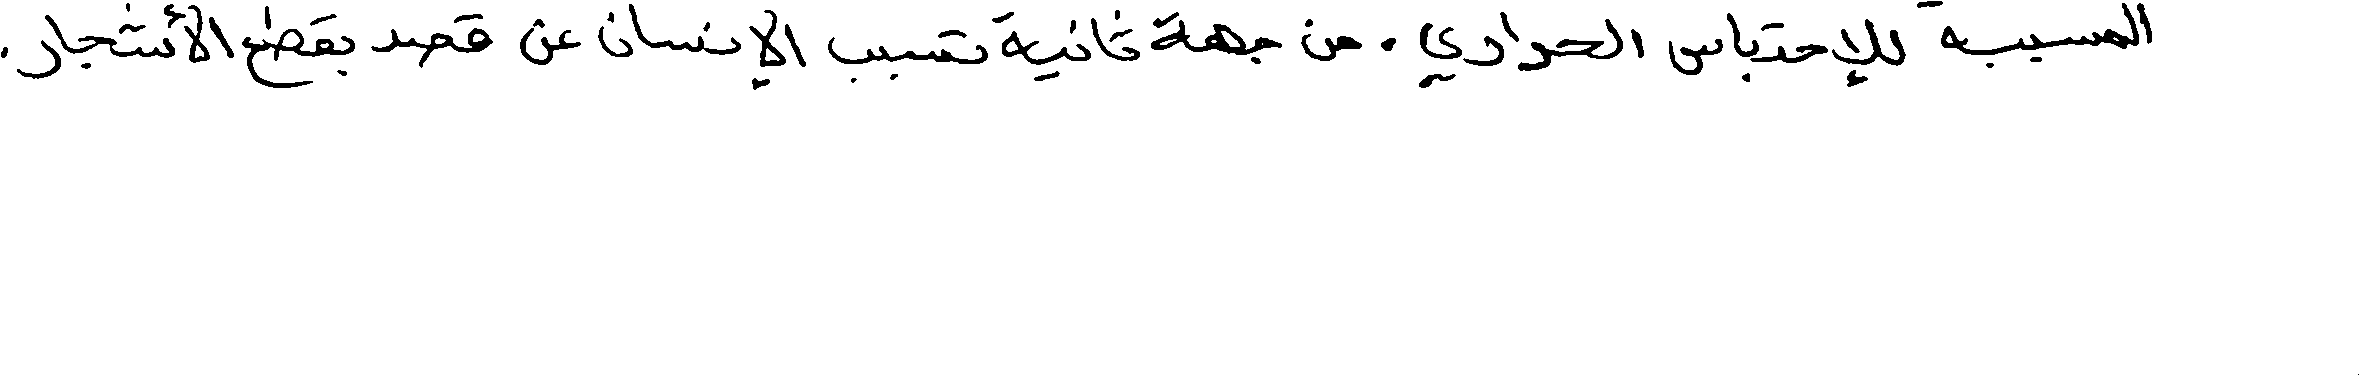 المسببة للإحتباس الحراري. من جهة ثانية تسبب الإنسان عن قصد بقطع الأشجار.